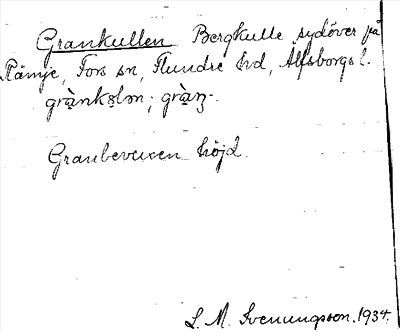 Grankullen Bergkulle sydöver på
Rånnje, Fors sn, Flundre hd, Älfsborgs l.
grànkələn; gràŋ-.
Granbevuxen höjd.
L. M. Svenungsson. 1934.